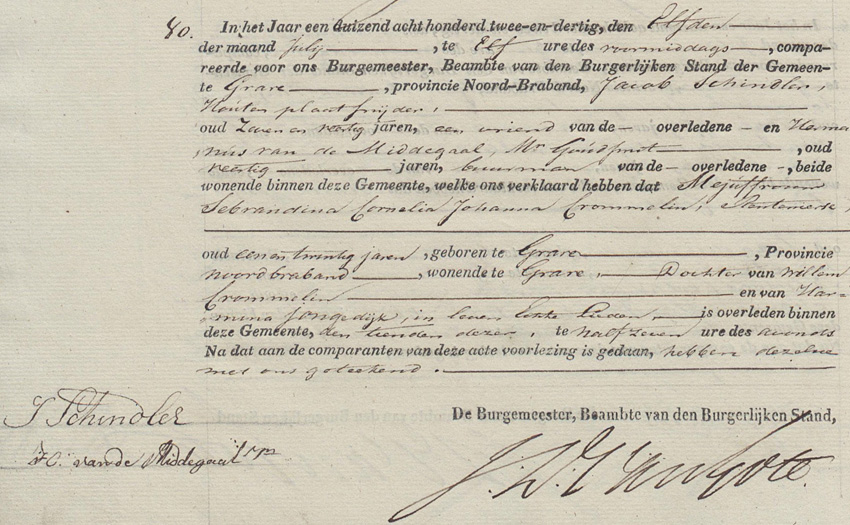 80. In het Jaar een duizend acht honderd twee-en-dertig, den Elfden
der maand July, te Elf ure des voormiddags, compa-
reerde voor ons Burgemeester, Beambte van den Burgerlijken Stand der Gemeen-
te Grave, provincie Noord-Braband, Jacob Schindler,
Houten plaatsnijder,
oud Zeven en veertig jaren, een vriend van de overledene en Herma
nus van de Middegaal, Mr Goudsmit, oud
veertig jaren, buurman van de overledene, beide
wonende binnen deze Gemeente, welke ons verklaard hebben dat Mejuffrouw
Sebrandina Cornelia Johanna Crommelin,
oud een en twintig jaren, geboren te Grave, Provincie
Noordbraband, wonende te Grave, Dochter van Willem
Crommelin en van Har-
mina Jongedijk, in leven Echte Lieden, is overleden binnen
deze Gemeente, den tienden dezer, te half zeven ure des avonds
Na dat aan de comparanten van deze acte voorlezing is gedaan, hebben dezelve
met ons geteekend.
De Burgemeester, Beambte van den Burgerlijken Stand,
J Schindler
van de Middegaal